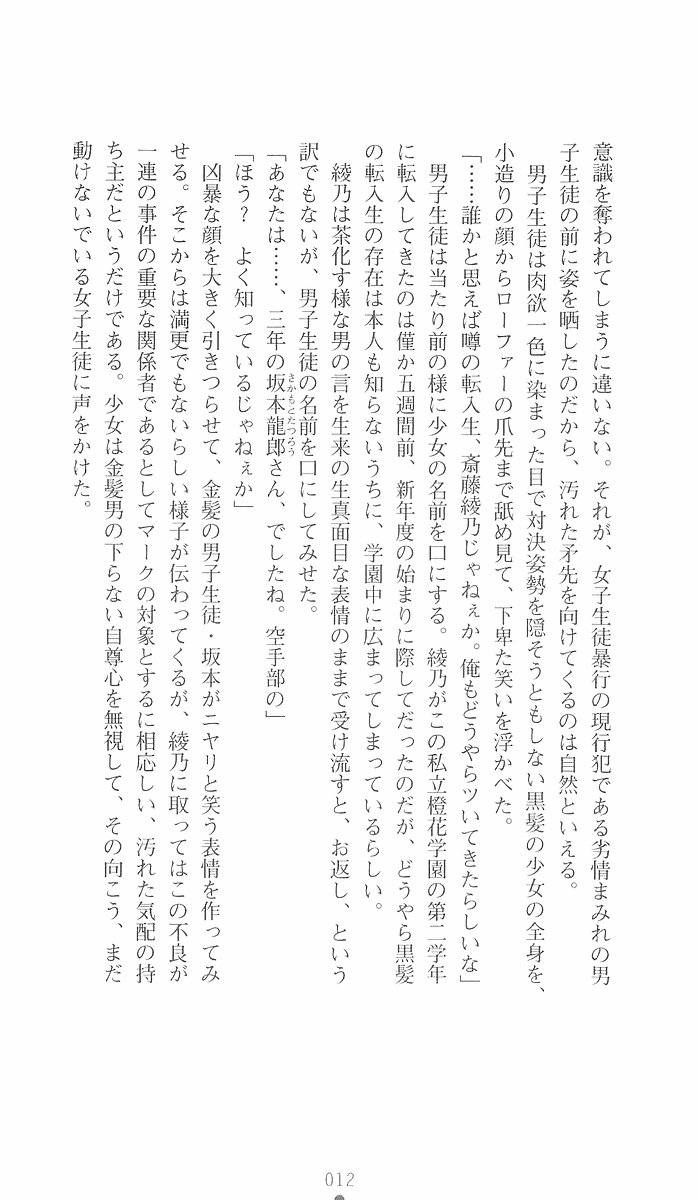 意識を奪われてしまうに違いない。それが、女子生徒暴行の現行犯である劣情まみれの男
子生徒の前に姿を晒したのだから、汚れた矛先を向けてくるのは自然といえる。
　男子生徒は肉欲一色に染まった目で対決姿勢を隠そうともしない黒髪の少女の全身を、
小造りの顔からローファーの爪先まで舐め見て、下卑た笑いを浮かべた。
「……誰かと思えば噂の転入生、斎藤綾乃じゃねぇか。俺もどうやらツいてきたらしいな」
　男子生徒は当たり前の様に少女の名前を口にする。綾乃がこの私立橙花学園の第二学年
に転入してきたのは僅か五週間前、新年度の始まりに際してだったのだが、どうやら黒髪
の転入生の存在は本人も知らないうちに、学園中に広まってしまっているらしい。
　綾乃は茶化す様な男の言を生来の生真面目な表情のままで受け流すと、お返し、という
訳でもないが、男子生徒の名前を口にしてみせた。
「あなたは……、三年の坂本龍郎さん、でしたね。空手部の」
さかもとたつろう
「ほう？　よく知っているじゃねぇか」
　凶暴な顔を大きく引きつらせて、金髪の男子生徒・坂本がニヤリと笑う表情を作ってみ
せる。そこからは満更でもないらしい様子が伝わってくるが、綾乃に取ってはこの不良が
一連の事件の重要な関係者であるとしてマークの対象とするに相応しい、汚れた気配の持
ち主だというだけである。少女は金髪男の下らない自尊心を無視して、その向こう、まだ
動けないでいる女子生徒に声をかけた。
012